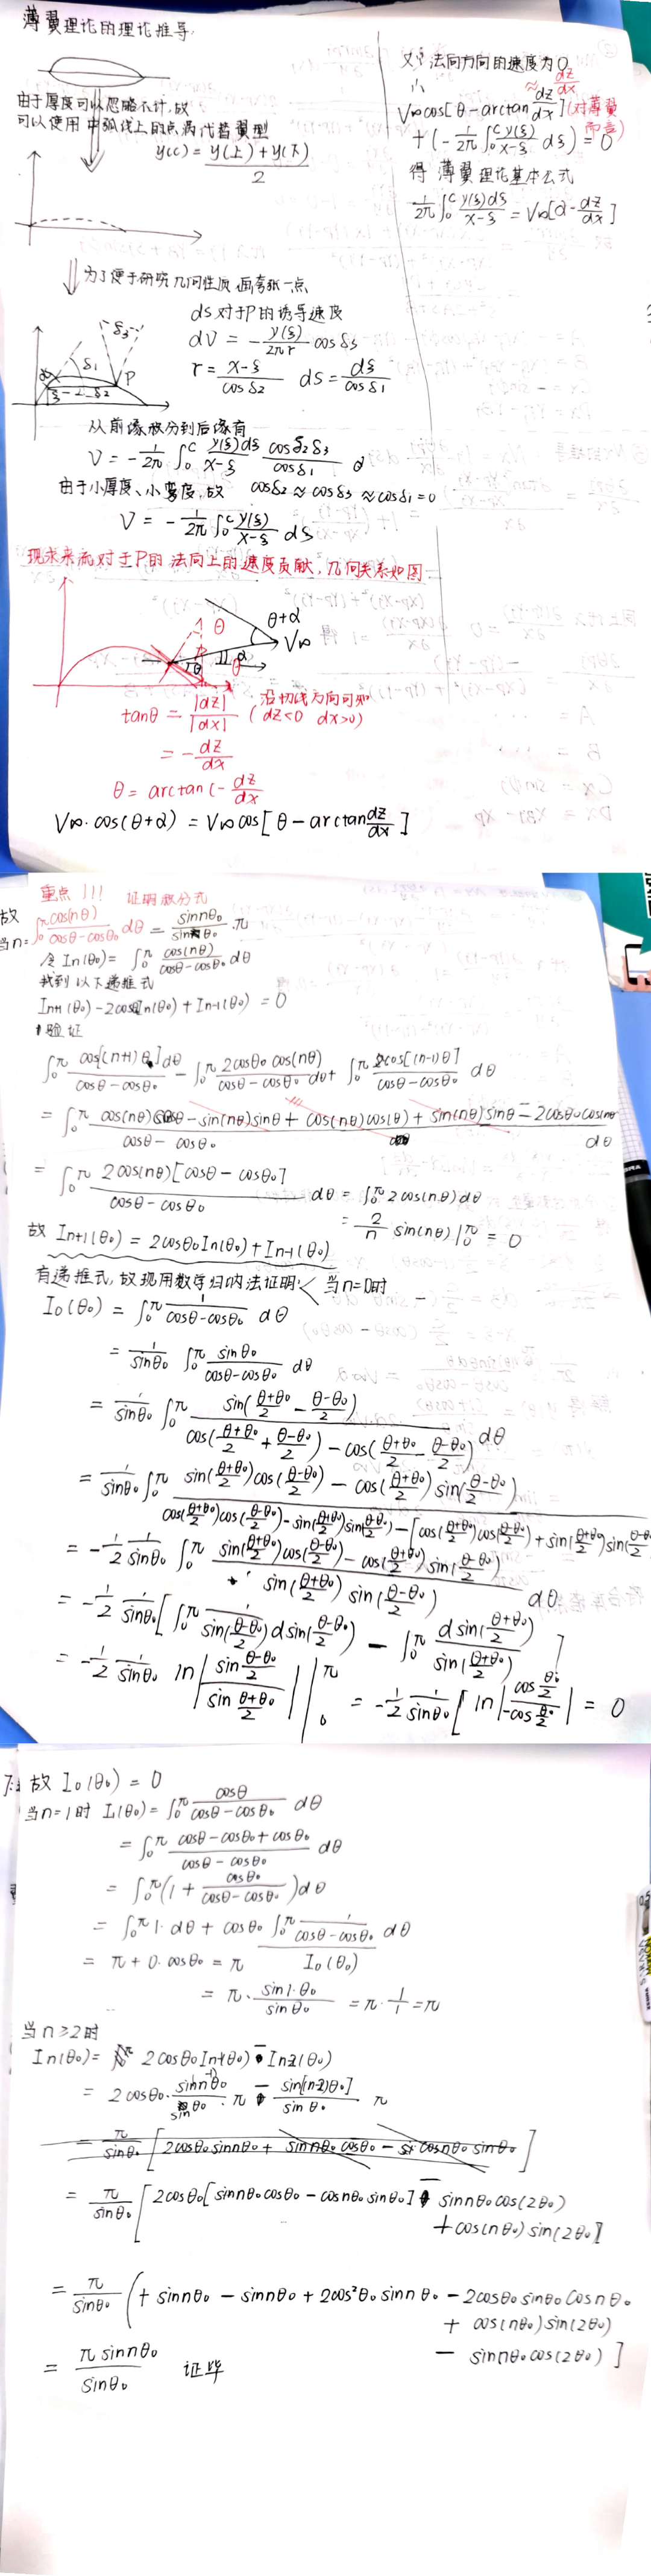 薄翼理论的理论推导
由于厚度可以忽略不计，故
可以使用中弧线上的点涡代替翼型
y(c) = \frac{y(上)+y(下)}{2}
为了便于研究几何性质，画夸张一点
ds对于P的诱导速度
dV = -\frac{γ(ξ)}{2πr} cosδ3
r = \frac{x-ξ}{cosδ2} ds = \frac{dξ}{cosδ1}
δ3
δ1
P
δ2
从前缘积分到后缘有
V = -\frac{1}{2π} ∫_0^c \frac{γ(ξ)dξ}{x-ξ} \frac{cosδ2δ3}{cosδ1}
由于小厚度、小弯度，故 cosδ2≈cosδ3≈cosδ1=0
V = -\frac{1}{2π} ∫_0^c \frac{γ(ξ)}{x-ξ} dξ
现求来流对于P的法向上的速度贡献，几何关系如图
θ
θ+α
V∞
α
θ
θ
tanθ = \frac{|dz|}{|dx|} (沿切线方向可知 dz<0 dx>0)
= -\frac{dz}{dx}
θ = arctan(-\frac{dz}{dx}
V∞·cos(θ+α) = V∞cos[θ-arctan\frac{dz}{dx}]
又∵法向方向的速度为0
∴ ≈\frac{dz}{dx}
V∞cos[θ-arctan\frac{dz}{dx}] (对薄翼而言)
+(-\frac{1}{2π}∫_0^c \frac{γ(ξ)}{x-ξ} dξ) = 0
得 薄翼理论基本公式
\frac{1}{2π}∫_0^c \frac{γ(ξ)dξ}{x-ξ} = V∞[α-\frac{dz}{dx}]
重点!!! 证明积分式
故
当n=
∫_0^π \frac{cos(nθ)}{cosθ-cosθ₀} dθ = \frac{sinnθ₀}{sinθ₀}·π
令 In(θ₀) = ∫_0^π \frac{cos(nθ)}{cosθ-cosθ₀} dθ
找到以下递推式
In+1(θ₀)-2cosθ₀In(θ₀)+In-1(θ₀) = 0
验证
∫_0^π \frac{cos[(n+1)θ]dθ}{cosθ-cosθ₀} - ∫_0^π \frac{2cosθ₀cos(nθ)}{cosθ-cosθ₀} dθ + ∫_0^π \frac{cos[(n-1)θ]}{cosθ-cosθ₀} dθ
= ∫_0^π \frac{cos(nθ)cosθ-sin(nθ)sinθ+cos(nθ)cos(θ)+sin(nθ)sinθ-2cosθ₀cosnθ}{cosθ-cosθ₀} dθ
= ∫_0^π \frac{2cos(nθ)[cosθ-cosθ₀]}{cosθ-cosθ₀} dθ = ∫_0^π 2cos(nθ)dθ
= \frac{2}{n} sin(nθ)|_0^π = 0
故 In+1(θ₀) = 2cosθ₀In(θ₀)+In-1(θ₀)
有递推式，故现用数学归纳法证明: 当n=0时
I₀(θ₀) = ∫_0^π \frac{1}{cosθ-cosθ₀} dθ
= \frac{1}{sinθ₀} ∫_0^π \frac{sinθ₀}{cosθ-cosθ₀} dθ
= \frac{1}{sinθ₀} ∫_0^π \frac{sin(\frac{θ+θ₀}{2}-\frac{θ-θ₀}{2})}{cos(\frac{θ+θ₀}{2}+\frac{θ-θ₀}{2})-cos(\frac{θ+θ₀}{2}-\frac{θ-θ₀}{2})} dθ
= \frac{1}{sinθ₀} ∫_0^π \frac{sin(\frac{θ+θ₀}{2})cos(\frac{θ-θ₀}{2})-cos(\frac{θ+θ₀}{2})sin(\frac{θ-θ₀}{2})}{cos(\frac{θ+θ₀}{2})cos(\frac{θ-θ₀}{2})-sin(\frac{θ+θ₀}{2})sin(\frac{θ-θ₀}{2})-[cos(\frac{θ+θ₀}{2})cos(\frac{θ-θ₀}{2})+sin(\frac{θ+θ₀}{2})sin(\frac{θ-θ₀}{2}}
= -\frac{1}{2}\frac{1}{sinθ₀} ∫_0^π \frac{sin(\frac{θ+θ₀}{2})cos(\frac{θ-θ₀}{2})-cos(\frac{θ+θ₀}{2})sin(\frac{θ-θ₀}{2})}{sin(\frac{θ+θ₀}{2})sin(\frac{θ-θ₀}{2})} dθ
= -\frac{1}{2}\frac{1}{sinθ₀}[∫_0^π \frac{1}{sin(\frac{θ-θ₀}{2})}dsin(\frac{θ-θ₀}{2}) - ∫_0^π \frac{dsin(\frac{θ+θ₀}{2})}{sin(\frac{θ+θ₀}{2})}]
= -\frac{1}{2}\frac{1}{sinθ₀} ln|\frac{sin\frac{θ-θ₀}{2}}{sin\frac{θ+θ₀}{2}}||_0^π = -\frac{1}{2}\frac{1}{sinθ₀}[ln|\frac{cos\frac{θ₀}{2}}{-cos\frac{θ₀}{2}}| = 0
故 I₀(θ₀) = 0
当n=1时 I₁(θ₀) = ∫_0^π \frac{cosθ}{cosθ-cosθ₀} dθ
= ∫_0^π \frac{cosθ-cosθ₀+cosθ₀}{cosθ-cosθ₀} dθ
= ∫_0^π (1+\frac{cosθ₀}{cosθ-cosθ₀})dθ
= ∫_0^π 1·dθ + cosθ₀ ∫_0^π \frac{1}{cosθ-cosθ₀} dθ
I₀(θ₀)
= π+0·cosθ₀ = π
= π·\frac{sin1·θ₀}{sinθ₀} = π·\frac{1}{1} = π
当n≥2时
In(θ₀) = 2cosθ₀In-1(θ₀) - In-2(θ₀)
= 2cosθ₀·\frac{sin(n-1)θ₀}{sinθ₀}·π - \frac{sin[(n-2)θ₀]}{sinθ₀} π
= \frac{π}{sinθ₀}[2cosθ₀sinnθ₀+sinnθ₀cosθ₀-cosnθ₀sinθ₀]
= \frac{π}{sinθ₀}[2cosθ₀[sinnθ₀cosθ₀-cosnθ₀sinθ₀] - sinnθ₀cos(2θ₀)
+cos(nθ₀)sin(2θ₀)]
= \frac{π}{sinθ₀}(+sinnθ₀-sinnθ₀+2cos²θ₀sinnθ₀-2cosθ₀sinθ₀cosnθ₀
+ cos(nθ₀)sin(2θ₀)
- sinnθ₀cos(2θ₀)]
= \frac{πsinnθ₀}{sinθ₀} 证毕